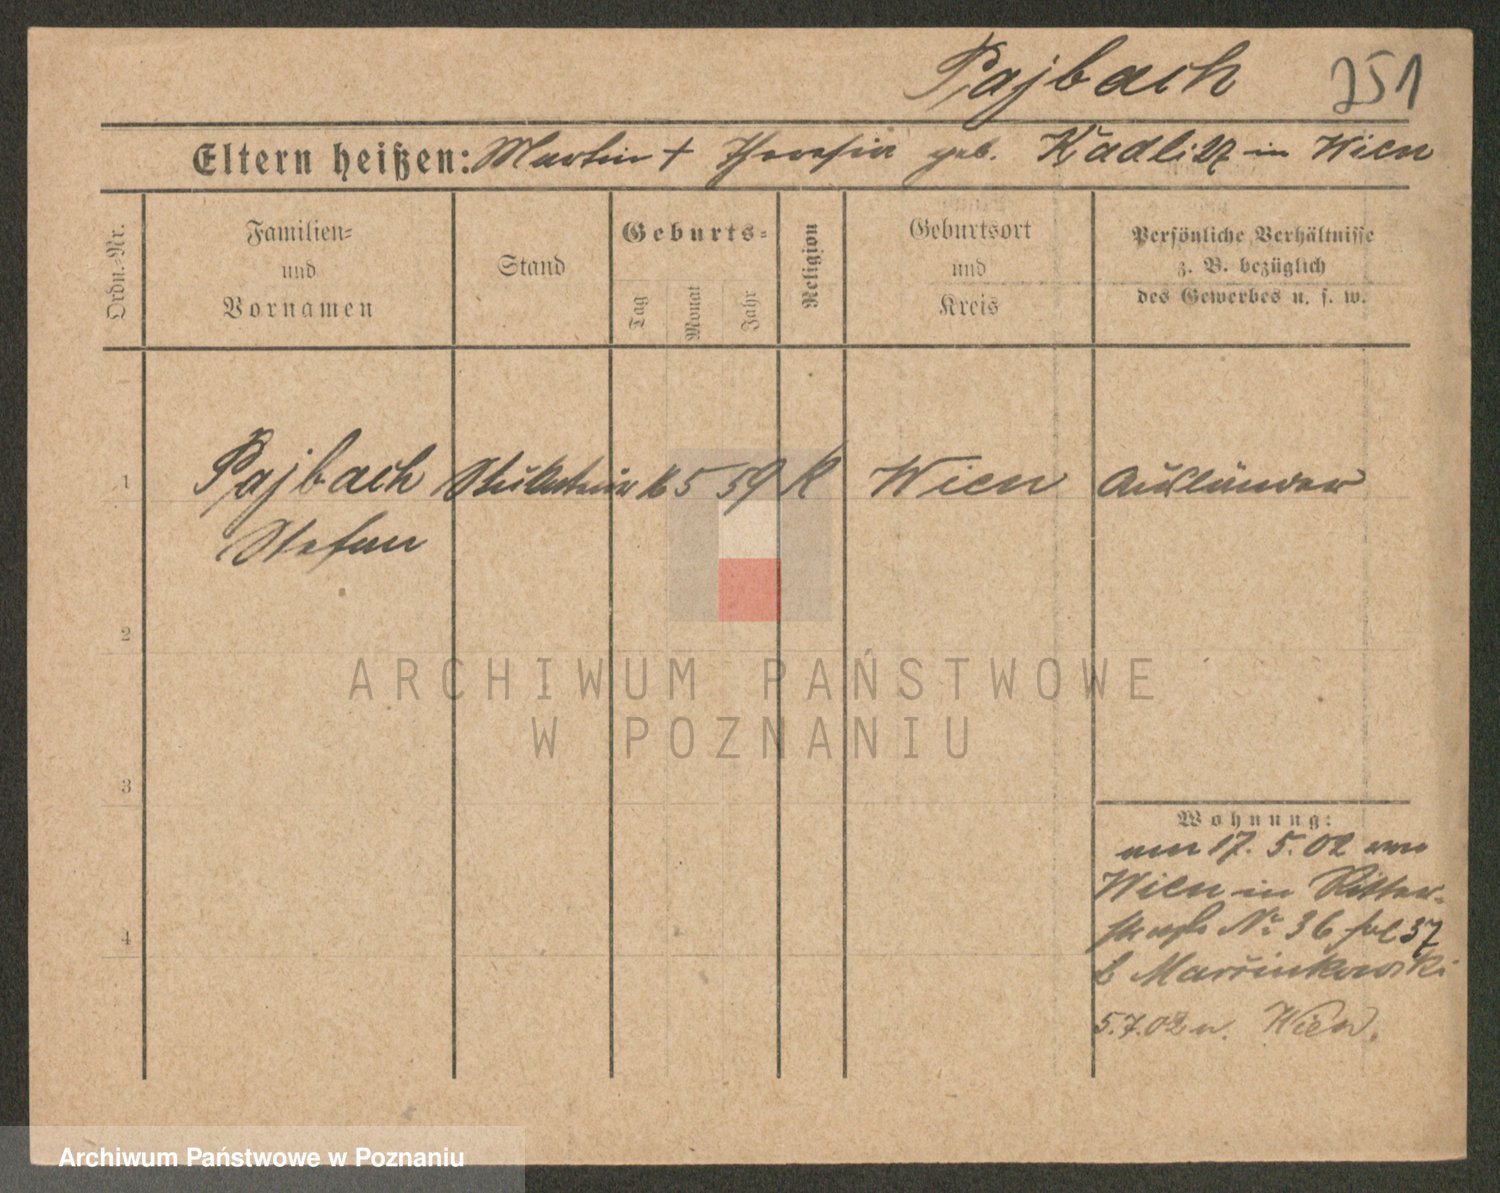 Pajbach 251
Eltern heißen: Martin + Theresia geb. Kadlitz in Wien
Ordn.-Nr.
Familien-
und
Vornamen
Stand
Geburts-
Tag
Monat
Jahr
Religion
Geburtsort
und
Kreis
Persönliche Verhältnisse
z. B. bezüglich
des Gewerbes u. s. w.
1 Pajbach Stukateur 5 59 K Wien Ausländer
Stefan
2
3
4
Wohnung:
am 17. 5. 02 von
Wien in Ritter-
straße No 36 37
b Marcinkowski
5.7.02 n. Wien.
ARCHIWUM PAŃSTWOWE
W POZNANIU
Archiwum Państwowe w Poznaniu